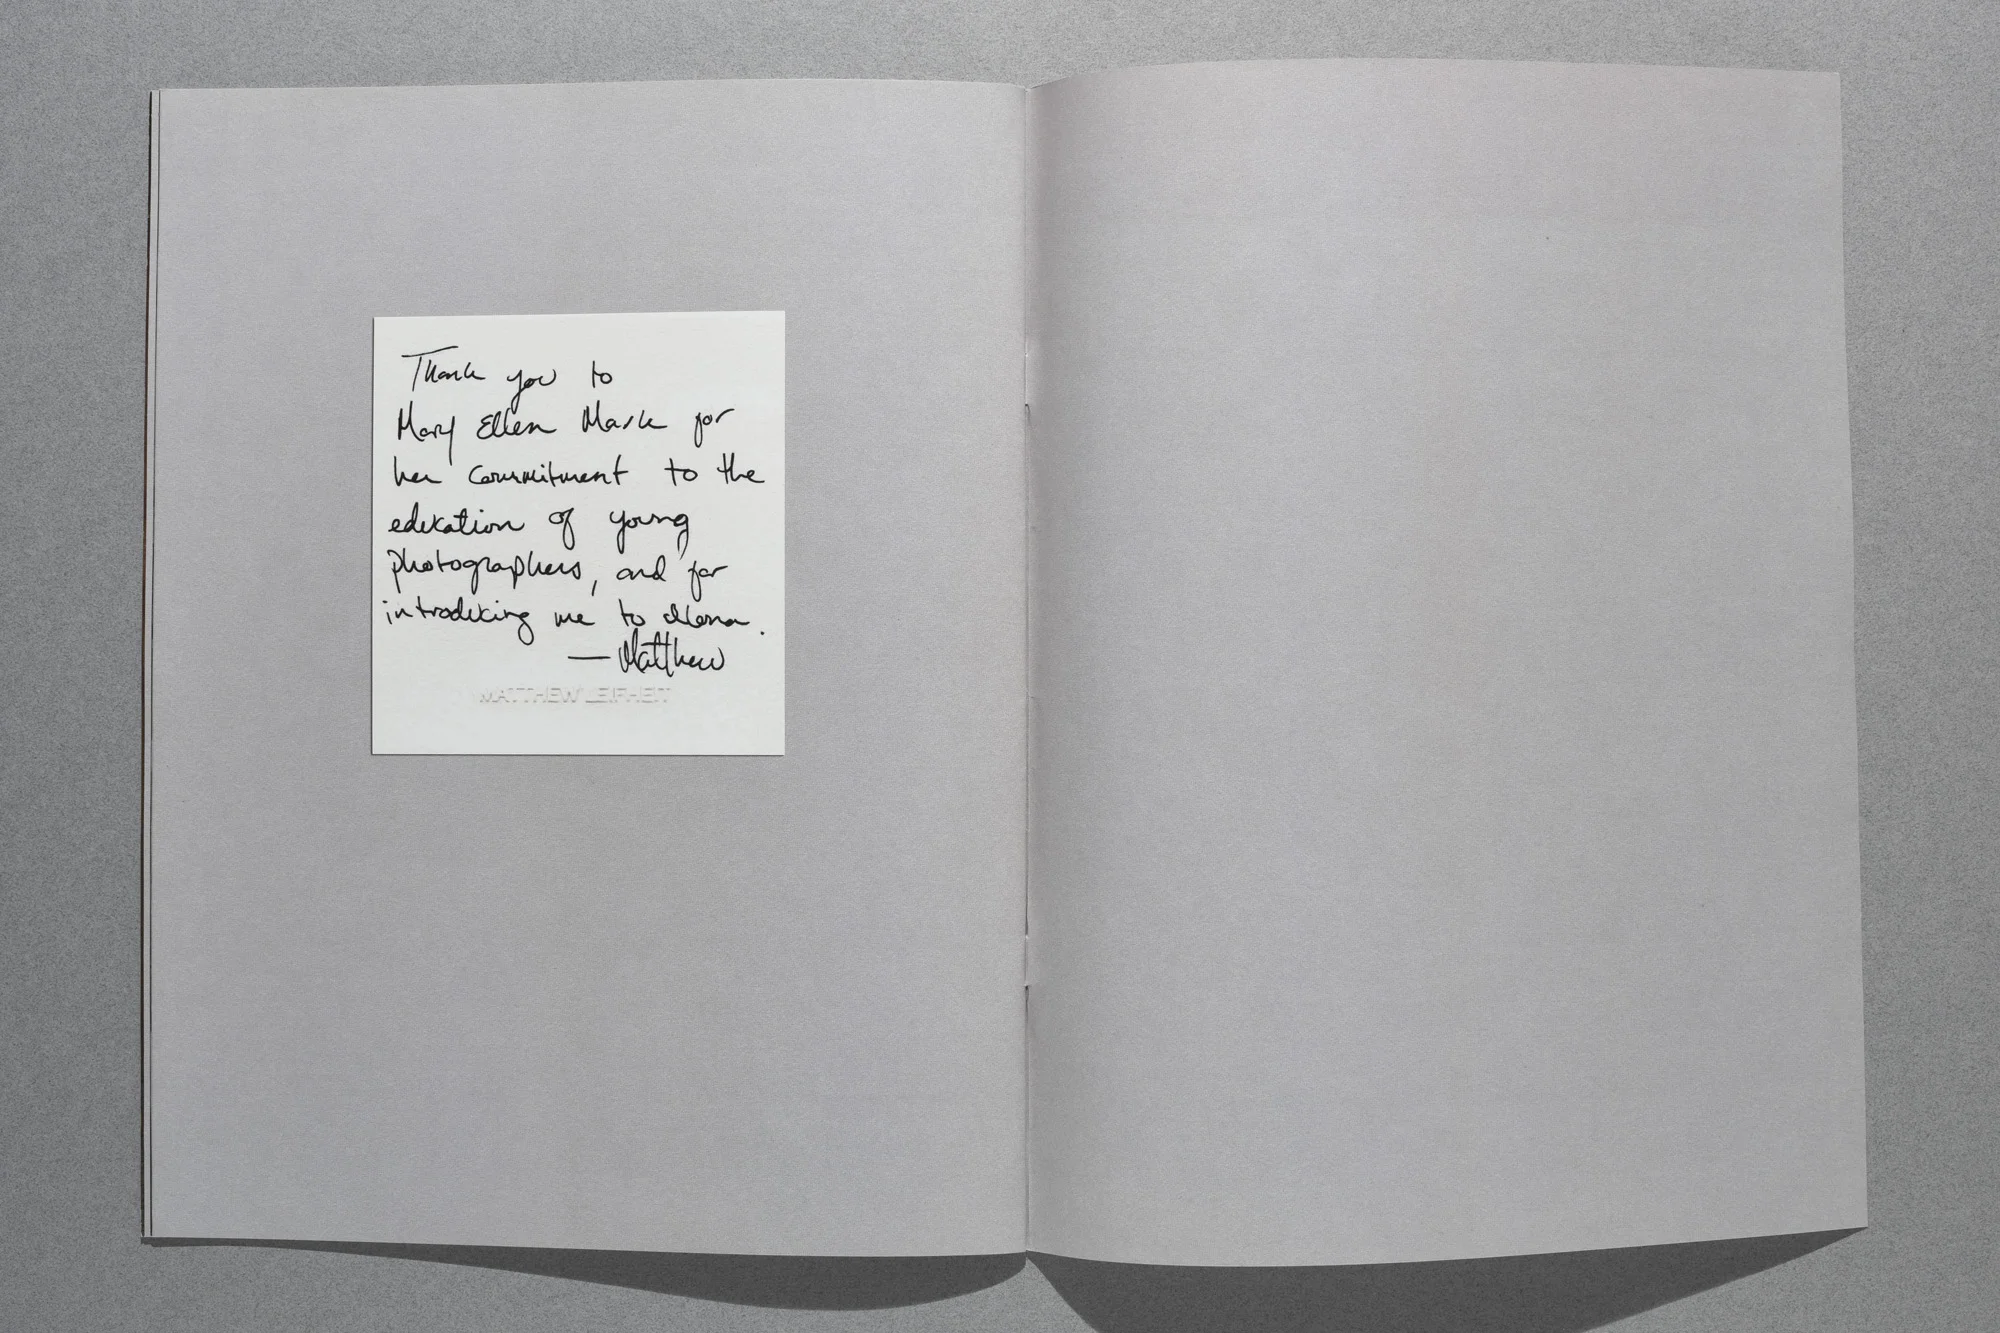 Thank you to
Mary Ellen Mark for
her commitment to the
education of young
photographers, and for
introducing me to
— Matthew
MATTHEW LEIFHEIT